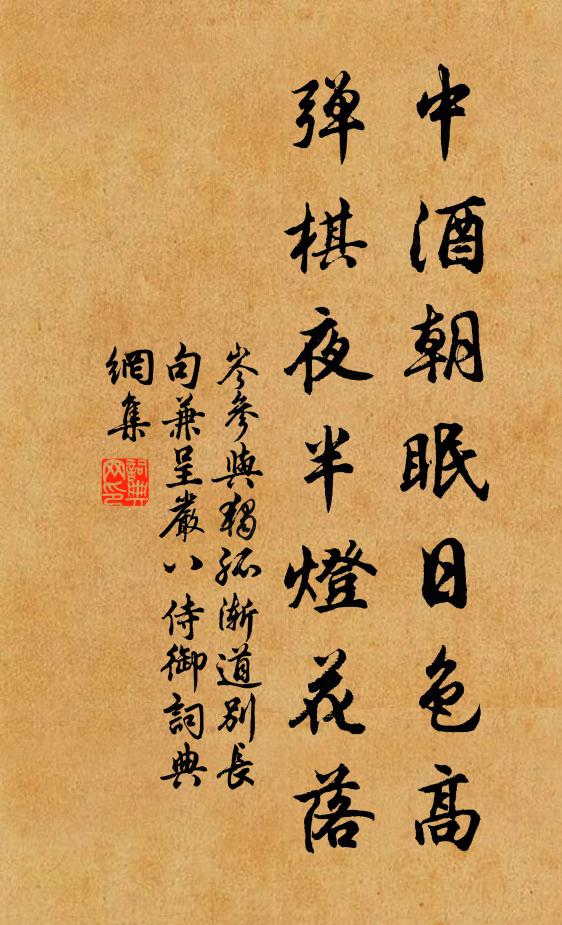 中酒朝眠日色高
弹棋夜半燈花落
岑參與獨孤漸道別長
句兼呈嚴八侍御詞典
網集
詞典
网印